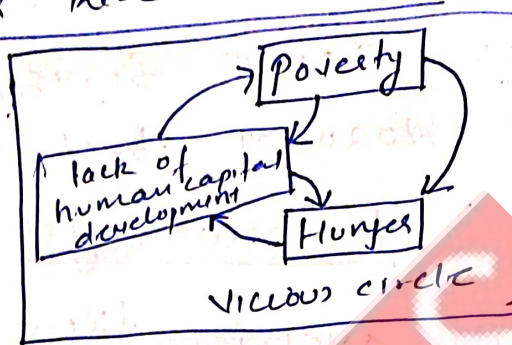 Poverty
lack of
human capital
development
Hunger
Vicious circle